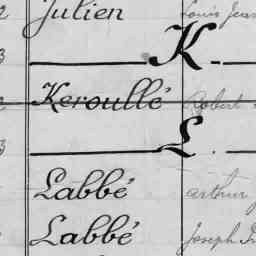 Julien Louis Jean
K.
Keroullé Robert
L.
Labbé Arthur
Labbé Joseph